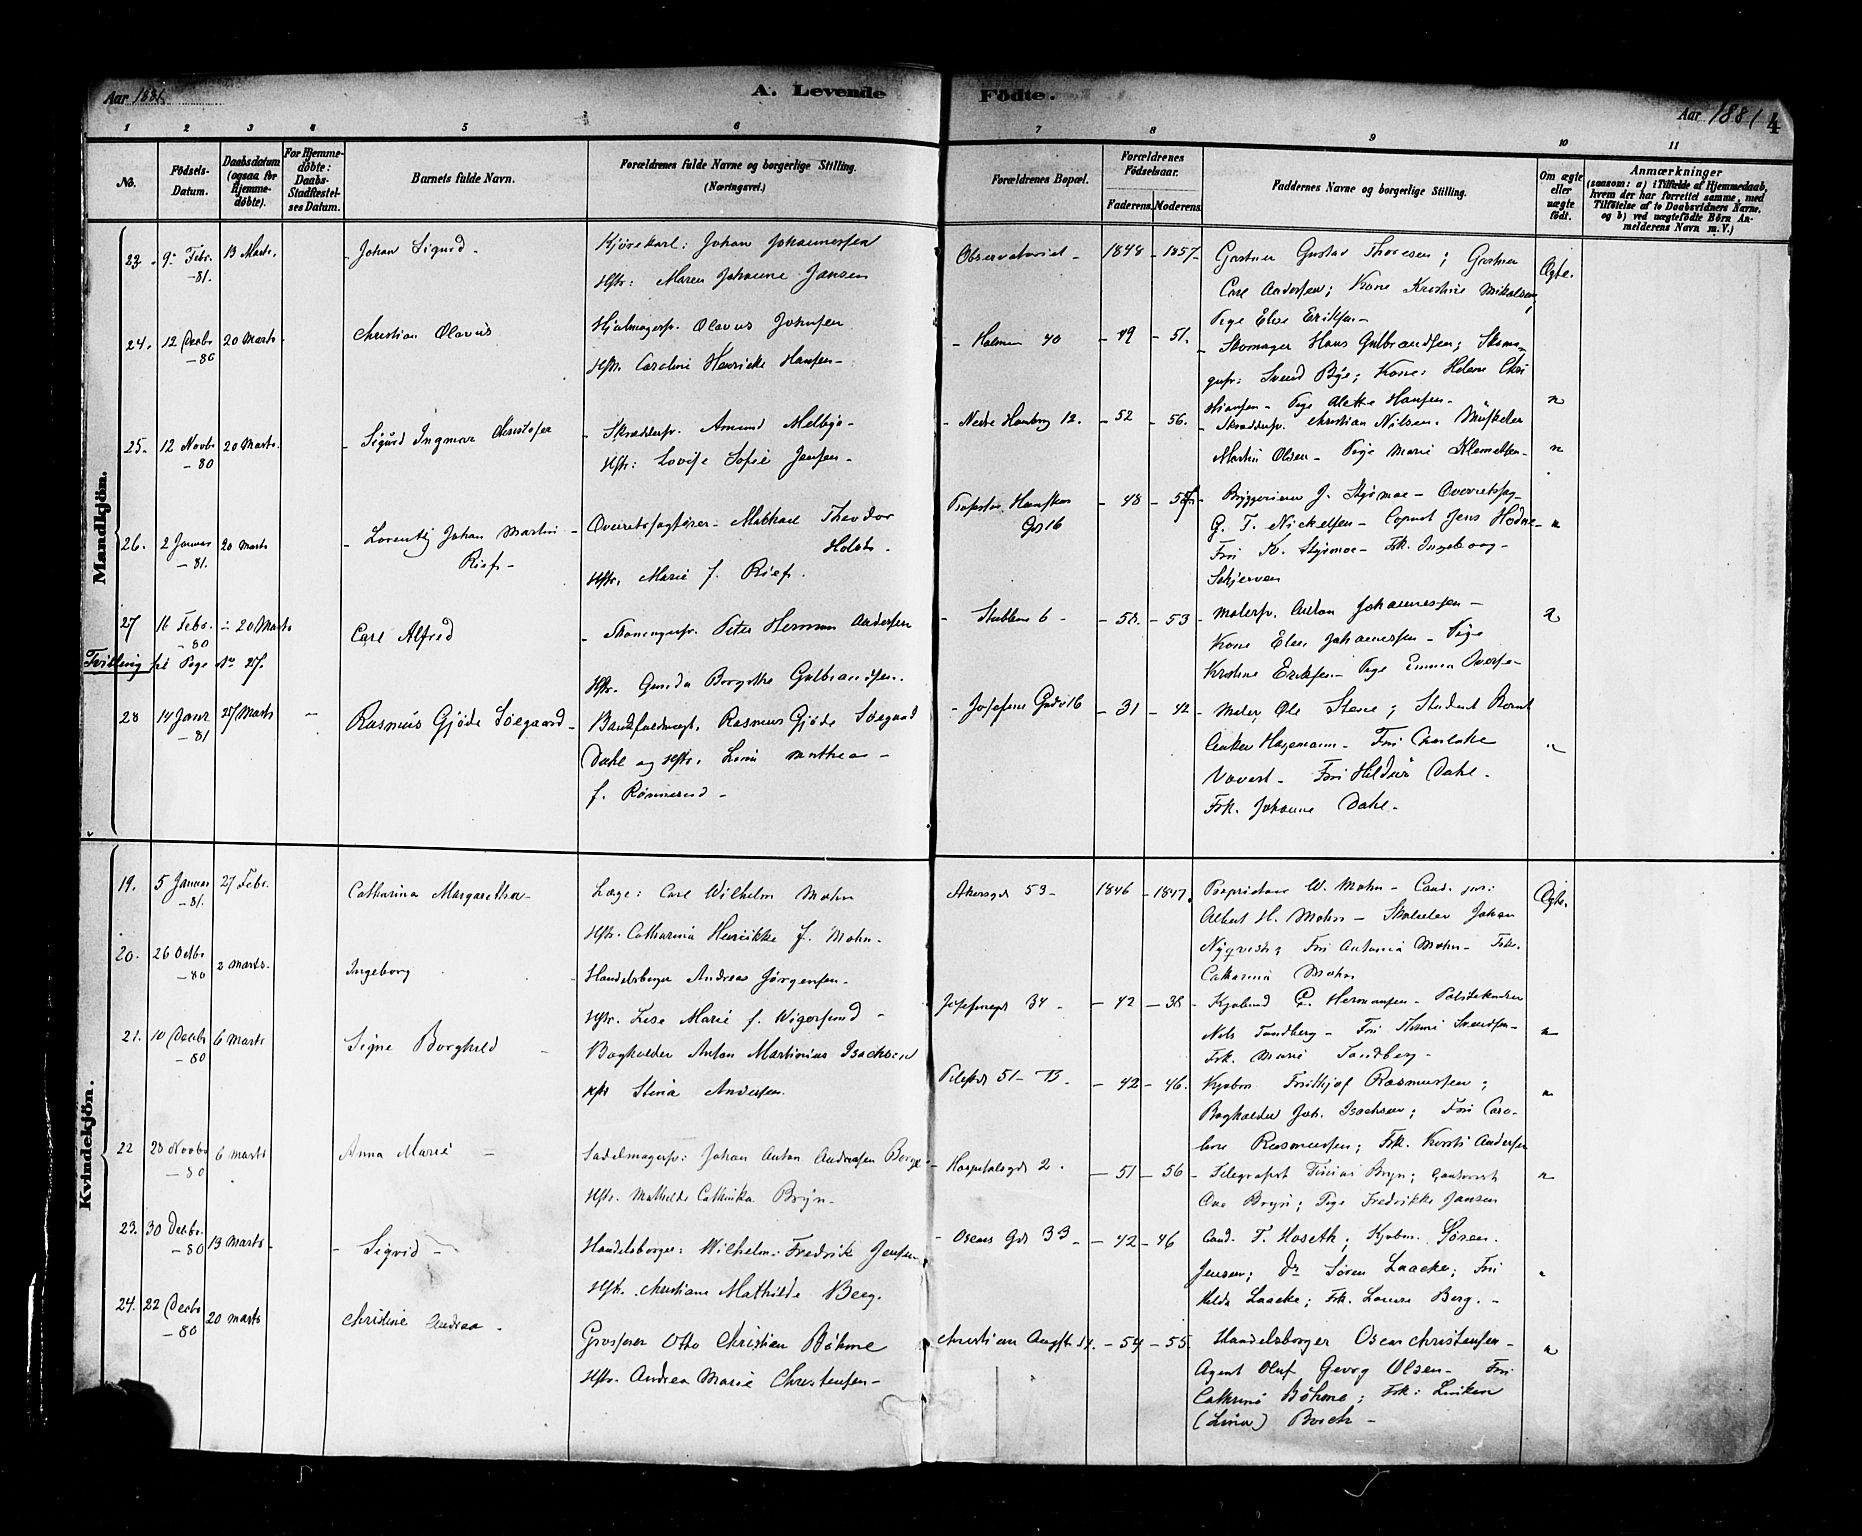 Aar 1881.
A. Levende Födte.
Aar 1881
4
1 2 3 4 5 6 7 8 9 10 11
No.
Födsels-Datum.
Daabsdatum (ogsaa for Hjemme-döbte).
For Hjemme-döbte: Daabs-Stadfæstel-ses Datum.
Barnets fulde Navn.
Forældrenes fulde Navne og borgerlige Stilling.
(Næringsvei.)
Forældrenes Bopæl.
Forældrenes Födselsaar.
Faderens. Moderens.
Faddernes Navne og borgerlige Stilling.
Om ægte eller uægte födt.
Anmærkninger
(saasom: a) i Tilfælde af Hjemmedaab, hvem der har forrettet samme, med Tilföielse af to Daabsvidners Navne. og b) ved uægtefödte Börn An-melderens Navn m. V.)
Mandkjön.
23. 9. Febr. -81. 13 Marts. Johan Sigurd -
Kjørekarl: Johan Johannessen
Hstr: Maren Johanne Jansen
Observatoriet - 1848 - 1857 -
Gartner Gustav Thoresen; Gartner
Carl Andersen; Kone Kristine Mikalsen;
Pige Elise Eriksen -
Ægte.
24. 12 Decbr -80 20 Marts Christian Olavus
Hjulmagersv. Olavus Johnsen
Hstr. Caroline Henrikke Hansen -
- Holmen 40 - 49 - 51.
- Skomager Hans Gulbrandsen; Skoma-
gersv: Svend Bye; Kone: Helene Chri
stiansen - Pige Alette Hansen -
"
25. 12 Novbr -80 20 Marts. - Sigurd Ingmar Christofer
- Skræddersv. Amund Melbye -
Hstr: Lovise Sofie Jensen -
- Nedre 12. - 52 - 56.
- Skræddersv. Christian Nilsen. Musketer
Martin Olsen - Pige Marie Klemetsen -
"
26. 2 Januar -81. 20 Marts - Lorentz Johan Martin Rief -
Overretssagfører - Mikkael Theodor
Holst -
Hstr. Marie f. Rief.
Professor Hansteens
Gd 16 - 48 -
Bryggerieier J. Styrmoe - Overretssag-
G. T. Nickelsen - Jens Hodne -
Fru K. Styrmoe - Frk. Ingeborg -
Schjerven
"
27 16 Febr. -80 20 Marts Carl Alfred
Tvilling til Pige No 27.
Peter Herman Andersen
Hstr. Gunda Borgitha Gulbrandsen.
- Stubben 6 - - 58. - 53
- Malersv. Anton Johannessen -
Kone Elen Johannessen - Pige
Kristine Eriksen - Pige Emma Overse -
"
28 14 Janr -81 27 Marts - Rasmus Gjöde Söegaard -
Rasmus Gjöde Söegaard
Dahl og Hstr. Lina Mathea -
f. Rönnerud -
- Josefine Gade 16 - 31 - 42
- Maler Ole Stene; Student Bernt
Anker Hagemann - Fru Charlotte
- Fru Hildur Dahl -
Frk. Johanne Dahl -
"
Kvindekjön.
19. 5 Januar -81. 27 Febr. Catharina Margaretha -
Læge: Carl Wilhelm Mohn
Hstr. Catharina Henrikke f. Mohn -
Akersgd 53 - 1846 - 1847.
Proprietær W. Mohn - Cand. jur:
Albert H. Mohn - Johan
Nyqvist; Fru Antonia Mohn - Frk.
Catharina Mohn
Ægte.
20. 26 Octbr -80 2 Marts. Ingeborg
Handelsborger Andreas Jörgensen -
Hstr. Lise Marie f. Wigersund -
Josefinegd 34 - - 42 - 38
- Kjøbmd G. Hermansen - Politi
Nels Sandberg - Fru Svendsen -
Frk. Marie Sandberg -
"
21. 10 Decbr -80 6 Marts Signe Borghild -
Bogholder Anton Martinius Isachsen
Hstr Stina Andersen.
Pilestd 51 - B. - 42 - 46.
- Kjøbm Frithjof Rasmussen;
Bogholder Joh. Isachsen; Fru Caro-
line Rasmussen; Frk. Kirsti Andersen
"
22 28 Novbr -80 6 Marts Anna Marie -
Sadelmagersv: Johan Anton Andreasen Berge
Hstr. Mathilde Cathinka Bryn -
- Hospitalsgd 2. - 51 - 56
- Telegrafist Bryn;
Bryn; Pige Fredrikke Jansen
"
23. 30 Decbr. -80 13 Marts - - Sigrid -
Handelsborger: Wilhelm Fredrik Jensen
Hstr. Christiane Mathilde Berg.
- Oscars Gd 33 - - 42 - 46
Cand. T. Hoseth; Kjøbm. Sören
Jensen; Dr Sören Laache; Fru
Hilda Laache; Frk. Louise Berg. -
"
24. 22 Decbr -80 20 Marts Christine Andrea -
Grosserer Otto Christian Böhme
Hstr. Andrea Marie Christensen -
Christian Augstsgd 7. - 54 - 55.
Handelsborger Oscar Christensen -
Agent Oluf Georg Olsen - Fru
Cathrine Böhme; Frk: Liniken
(Lina) Borch -
"